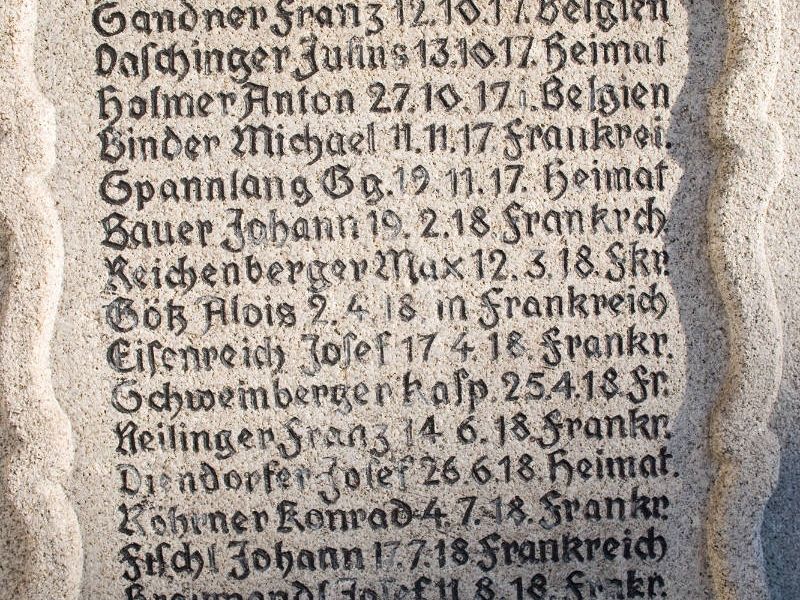 Sandner Franz 12.10.17. Belgien
Daſchinger Julius 13.10.17. Heimat
Holmer Anton 27.10.17. Belgien
Binder Michael 11.11.17. Frankrei.
Spannlang Gg. 19.11.17. Heimat
Bauer Johann 19. 2.18. Frankrch
Reichenberger Max 12. 3.18. Fkr.
Götz Alois 2. 4. 18. in Frankreich
Eiſenreich Joſef 17. 4. 18. Frankr.
Schweinberger Kaſp. 25.4.18. Fr.
Reilinger Franz 14. 6. 18. Frankr.
Diendorfer Joſef 26.6.18. Heimat.
Röhrner Konrad 4. 7. 18. Frankr.
Fiſchl Johann 17.7.18 Frankreich
Joſef 11. 8. 18. Frankr.